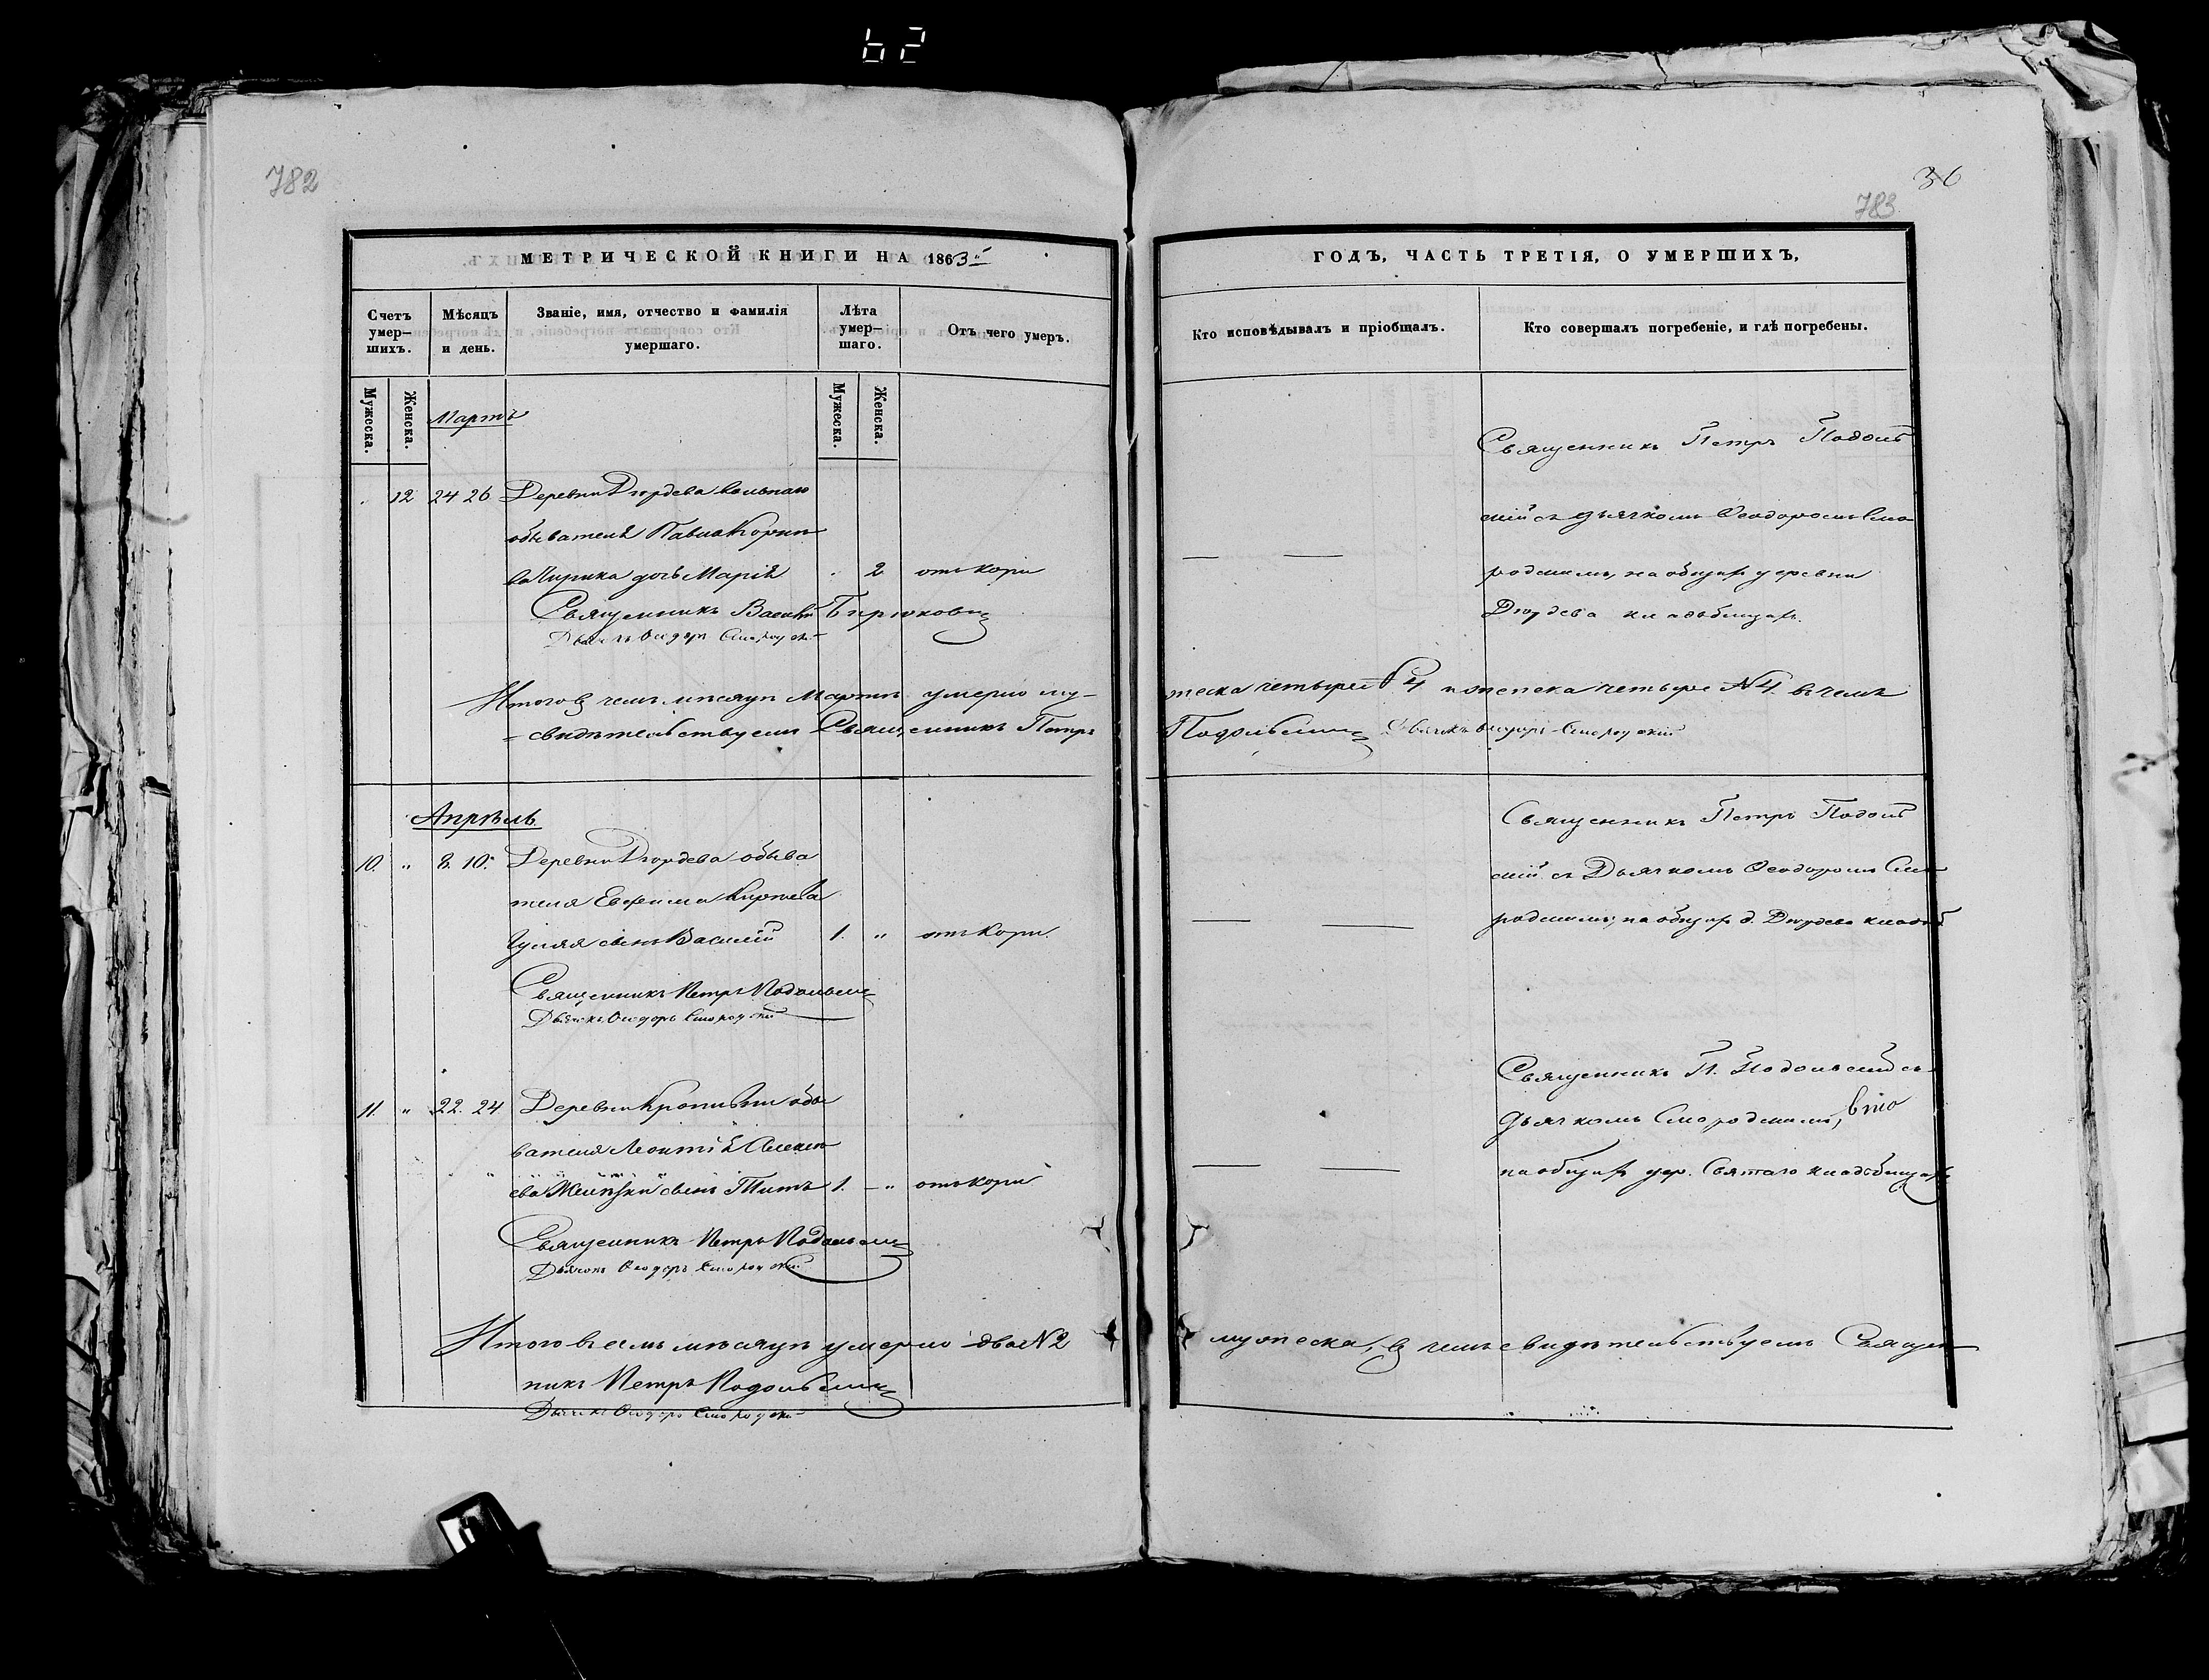 62
782
МЕТРИЧЕСКОЙ КНИГИ НА 1863й
Счетъ умер–шихъ.
Мѣсяцъ и день.
Званіе, имя, отчество и фамилія умершаго.
Лѣта умер–шаго.
Отъ чего умеръ.
Мужеска.
Женска.
Мужеска.
Женска.
Мартъ
12 24 26 Деревни Дюрдева вольнаго
обывателя Павла
дочь Марія 2 отъ кори
Священникъ Василій Бирюковъ
Дьячекъ Ѳеодоръ
Итого въ семъ мѣсяцѣ Мартѣ умерло му–
свидѣтельствуемъ Священникъ Петръ
Апрѣль
10. „ 8. 10. Деревни Дюрдева обыва
теля Евфима
сынъ Василій 1. „ отъ кори.
Священникъ Петръ Подольскій
Дьячекъ Ѳеодоръ
11. „ 22. 24 Деревни обы
вателя Леонтія Алексѣ
ева сынъ Титъ 1. – „ отъ кори
Священникъ Петръ Подольскій
Дьячекъ Ѳеодоръ
Итого въ семъ мѣсяцѣ умерло два №2
никъ Петръ Подольскій
Дьячекъ Ѳеодоръ
36
783
ГОДЪ, ЧАСТЬ ТРЕТІЯ, О УМЕРШИХЪ,
Кто исповѣдывалъ и пріобщалъ.
Кто совершалъ погребеніе, и гдѣ погребены.
Священникъ Петръ Подоль
скій съ дьячкомъ Ѳеодоромъ Смо
родскимъ, на общемъ деревни
Дюрдева кладбищѣ.
жеска четыре №4 и женска четыре №4. въ чемъ
Подольскій Дьячекъ Ѳеодоръ
Священникъ Петръ Подоль
скій съ Дьячкомъ Ѳеодоромъ Смо
родскимъ, на общемъ д. Дюрдева кладб.
Священникъ П. Подольскій съ
дьячкомъ Смородскимъ,
на общемъ дер. Святаго кладбищѣ
мужеска, въ чемъ свидѣтельствуемъ Священ